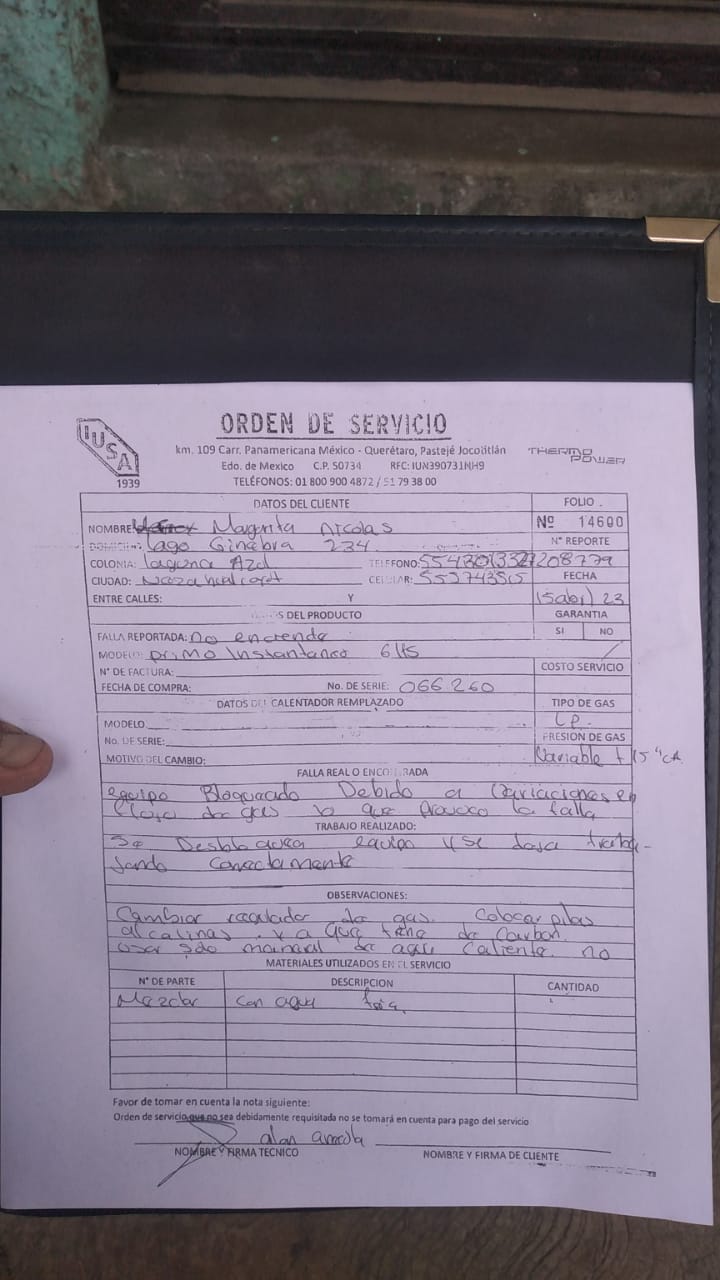 IUSA
1939
ORDEN DE SERVICIO
km. 109 Carr. Panamericana México - Querétaro, Pastejé Jocotitlán
Edo. de Mexico C.P. 50734 RFC: IUN390731NH9
TELÉFONOS: 01 800 900 4872 / 51 79 38 00
THERMO POWER
DATOS DEL CLIENTE FOLIO
NOMBRE Margarita Nicolas Nº 14600
Lago Ginebra 234. N° REPORTE
COLONIA: laguna Azul TELEFONO:
CIUDAD: CELULAR: FECHA
ENTRE CALLES: Y 15 abril 23
DEL PRODUCTO GARANTIA
FALLA REPORTADA: no enciende SI NO
MODELO: primo Instantaneo 6 lts
N° DE FACTURA: COSTO SERVICIO
FECHA DE COMPRA: No. DE SERIE: 066260
DATOS DEL CALENTADOR REMPLAZADO TIPO DE GAS
MODELO LP.
No. DE SERIE: PRESION DE GAS
MOTIVO DEL CAMBIO: Variable + 15 "CA
FALLA REAL O ENCONTRADA
equipo Bloqueado Debido a Variaciones en
flujo de gas lo que provoco la falla
TRABAJO REALIZADO:
Se Desbloquea equipo y se deja traba-
jando correctamente
OBSERVACIONES:
Cambiar regulador de gas. Colocar pilas
alcalinas. ya que tiene de Carbon.
usar solo maneral de agua Caliente. no
MATERIALES UTILIZADOS EN EL SERVICIO
N° DE PARTE DESCRIPCION CANTIDAD
Mezclar con agua fria.
Favor de tomar en cuenta la nota siguiente:
Orden de servicio que no sea debidamente requisitada no se tomará en cuenta para pago del servicio
alan
NOMBRE Y FIRMA TECNICO NOMBRE Y FIRMA DE CLIENTE